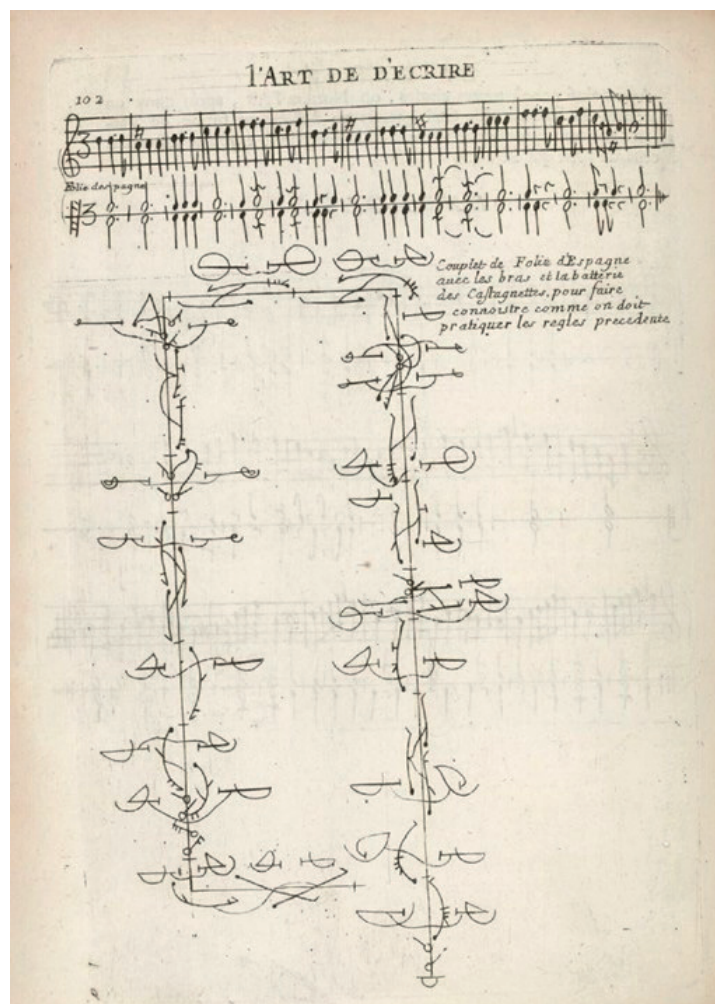 l'ART DE D'ECRIRE
102
Folie des pagne
Couplet de Folie d'Espagne
avec les bras et la batterie
des Castagnettes, pour faire
connoistre comme on doit
pratiquer les regles precedente